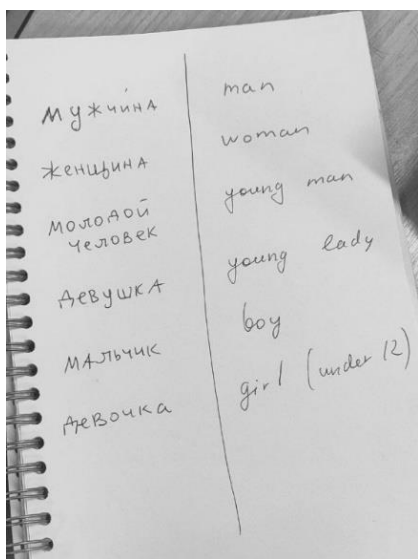 мужчи́на
женщина
молодой
человек
девушка
мальчик
девочка
man
woman
young man
young lady
boy
girl (under 12)